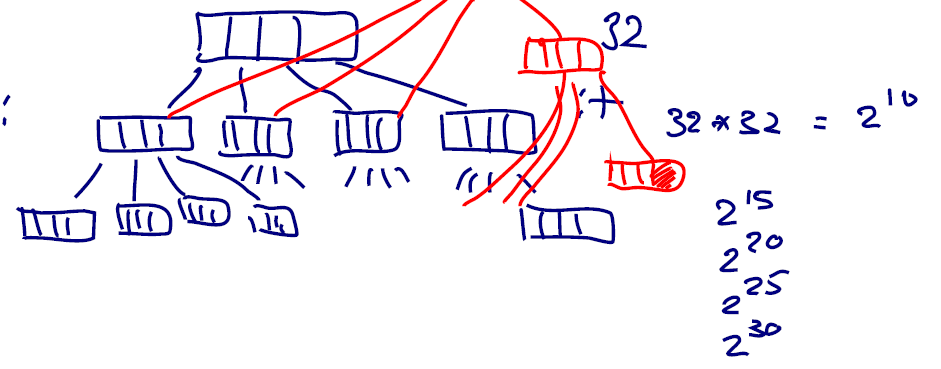 32
32 * 32 = 2^10
2^15
2^20
2^25
2^30